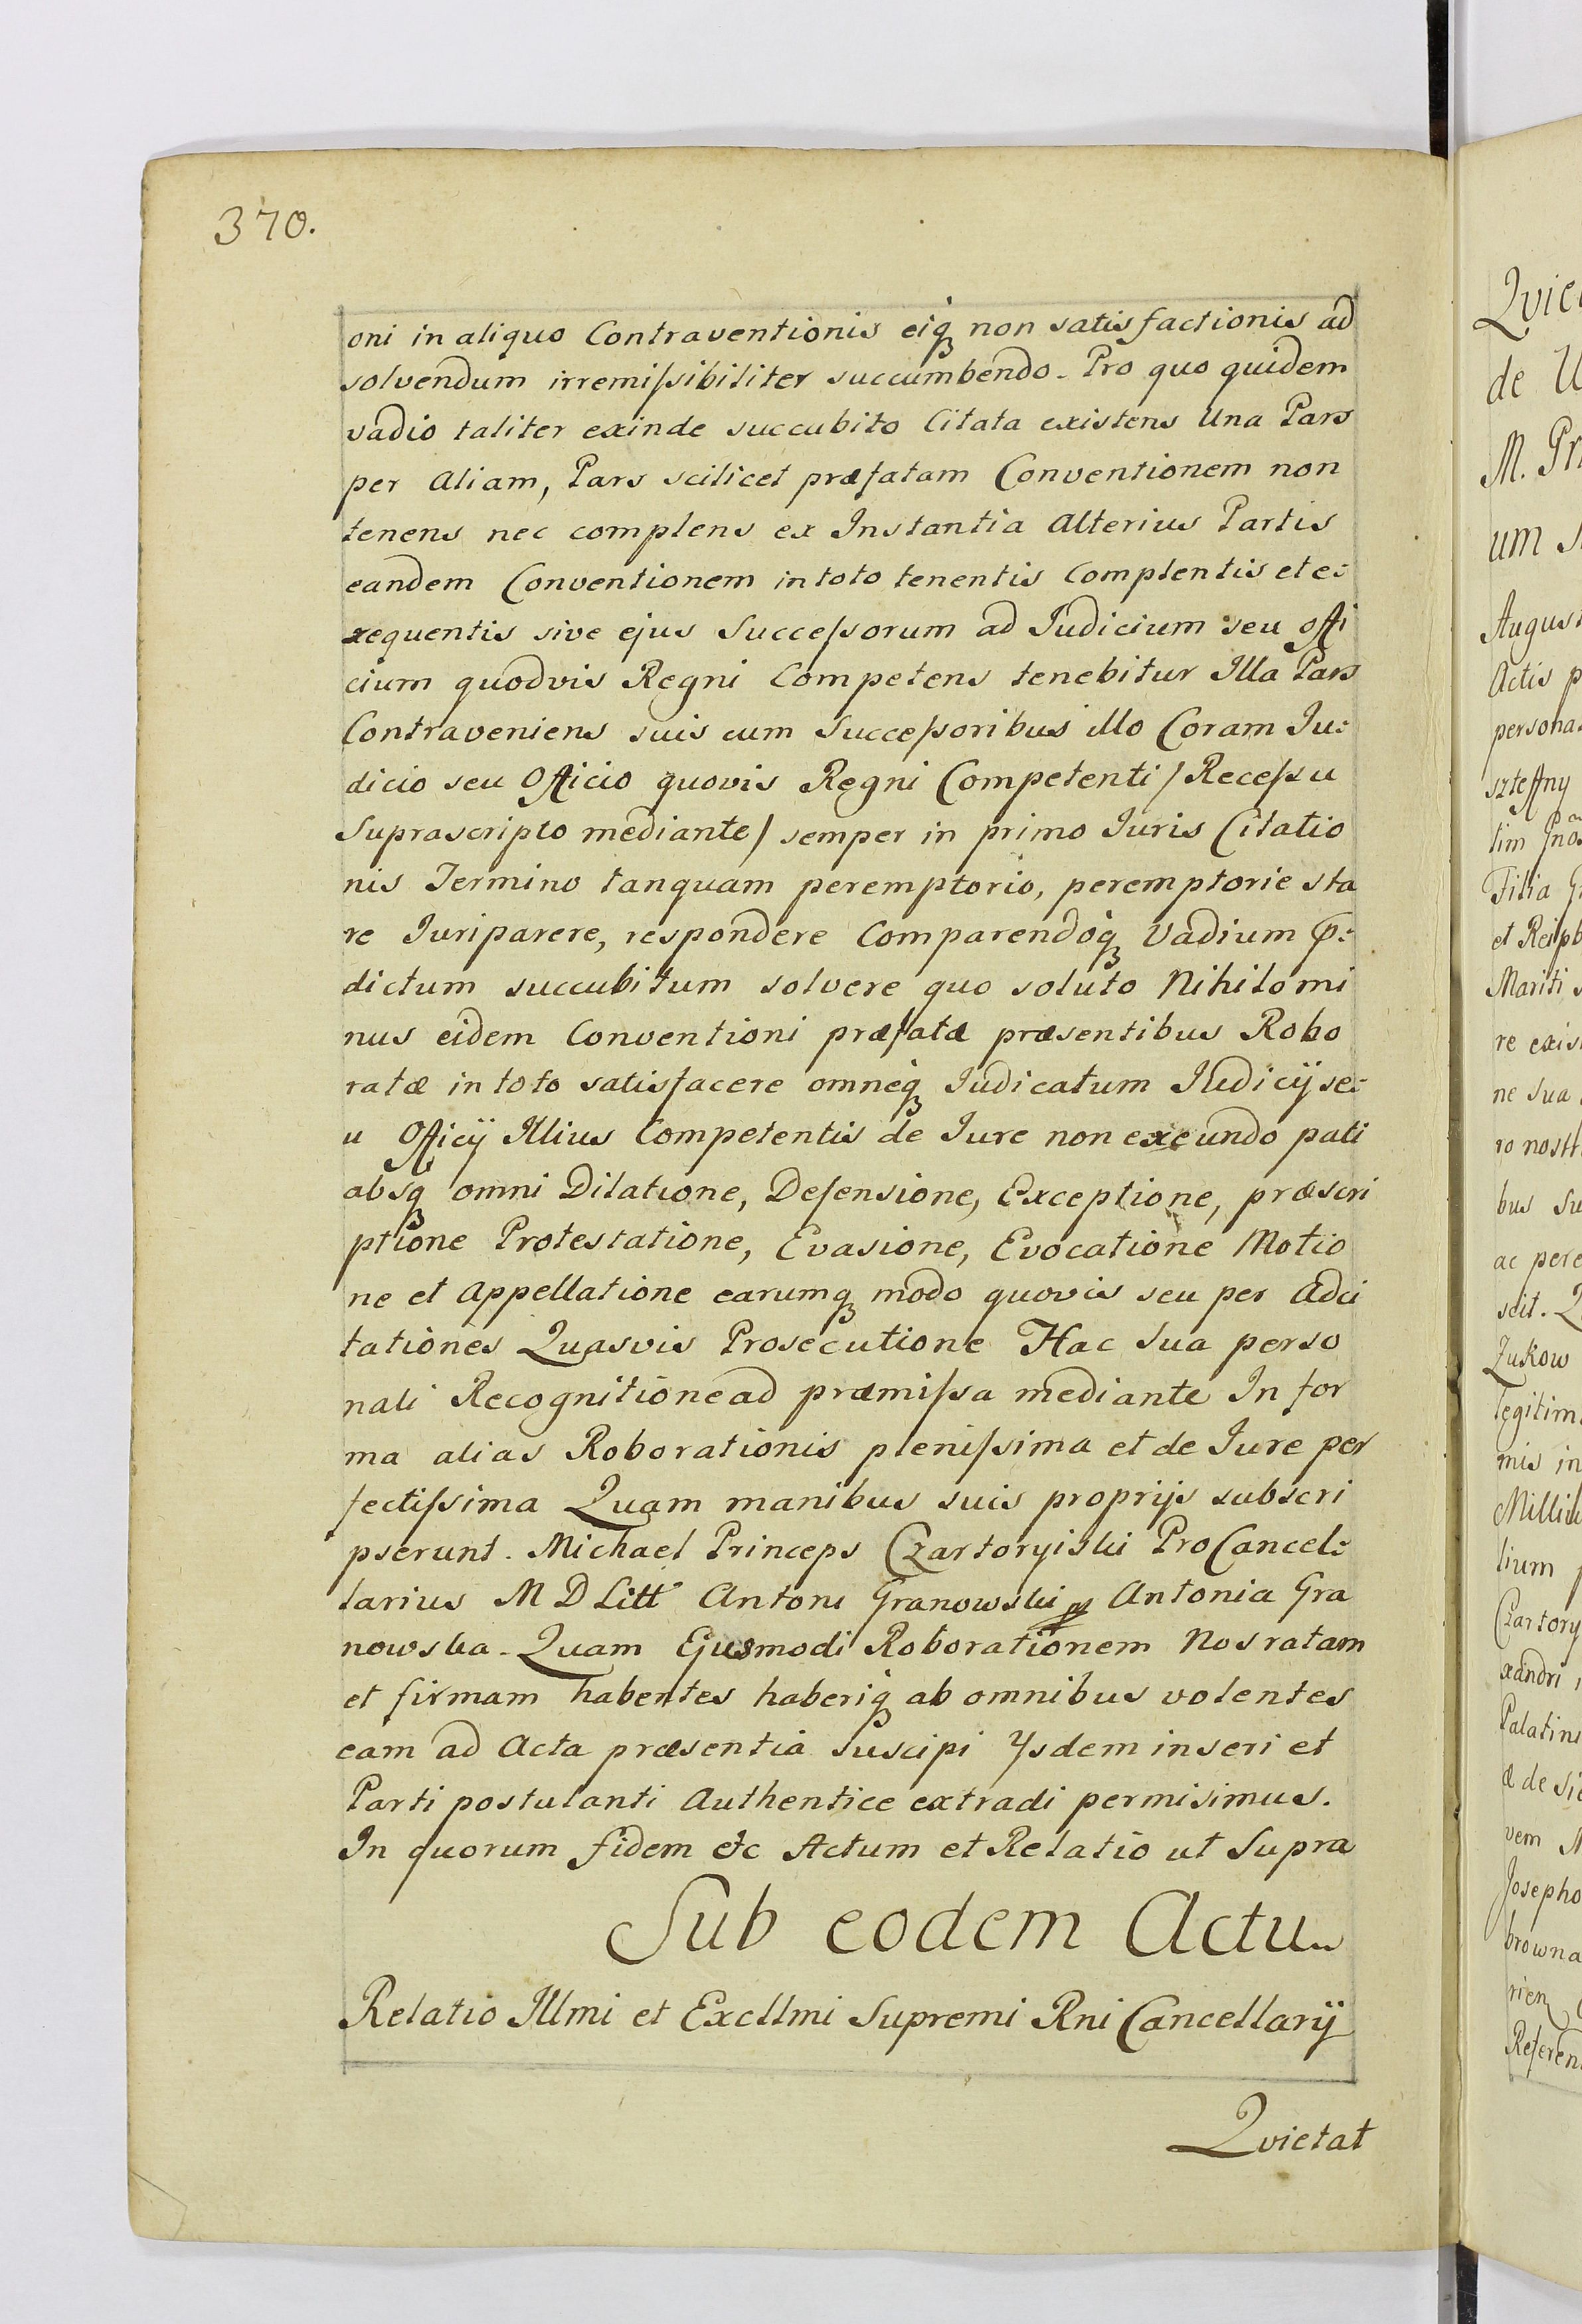 370.
oni in aliquo Contraventionis eiq3 non satisfactionis ad
solvendum irremiſsibiliter succumbendo. Pro quo quidem
vadio taliter exinde succubito Citata existens Una Pars
per Aliam, Pars scilicet præfatam Conventionem non
tenens nec complens ex Instantia Alterius Partis
eandem Conventionem in toto tenentis Complentis et e:
xequentis sive ejus Succeſsorum ad Iudicium seu offi
cium quodvis Regni Competens tenebitur Illa Pars
Contraveniens suis cum Succeſsoribus illo Coram Iu:
dicio seu Officio quovis Regni Competenti / Receſsu
Suprascripto mediante / semper in primo Iuris Citatio
nis Termino tanquam peremptorio, peremptorie sta
re Iuriparere, respondere Comparendoq3 Vadium p:
dictum succubitum solvere quo soluto Nihilomi
nus eidem Conventioni præfatæ præsentibus Robo
ratæ in toto satisfacere omneq3 Iudicatum Iudicij se:
u Officij Illius Competentis de Iure non exeundo pati
absq3 omni Dilatione, Defensione, Exceptione, præscri
ptione Protestatione, Evasione, Evocatione Motio
ne et Appellatione earumq3 modo quovis seu per Adci
tationes Quasvis Prosecutione Hac Sua perso
nali Recognitione ad præmiſsa mediante In for
ma alias Roborationis pleniſsima et de Iure per
fectiſsima Quam manibus suis proprijs subscri
pserunt. Michael Princeps Czartoryiski ProCancel:
larius M D Litt Antoni Granowski Antonia Gra
nowska. Quam Ejusmodi Roborationem Nos ratam
et firmam habentes haberiq3 ab omnibus volentes
eam ad Acta præsentia Suscipi Ysdem inseri et
Parti postulanti Authentice extradi permisimus.
In quorum fidem etc Actum et Relatio ut Supra
Sub eodem Actu
Relatio Illmi et Excllmi Supremi Rni Cancellarij
Qvietat
de
M.
um
Actis
Filia
Mariti
ne sua
bus
Zukow
mis in